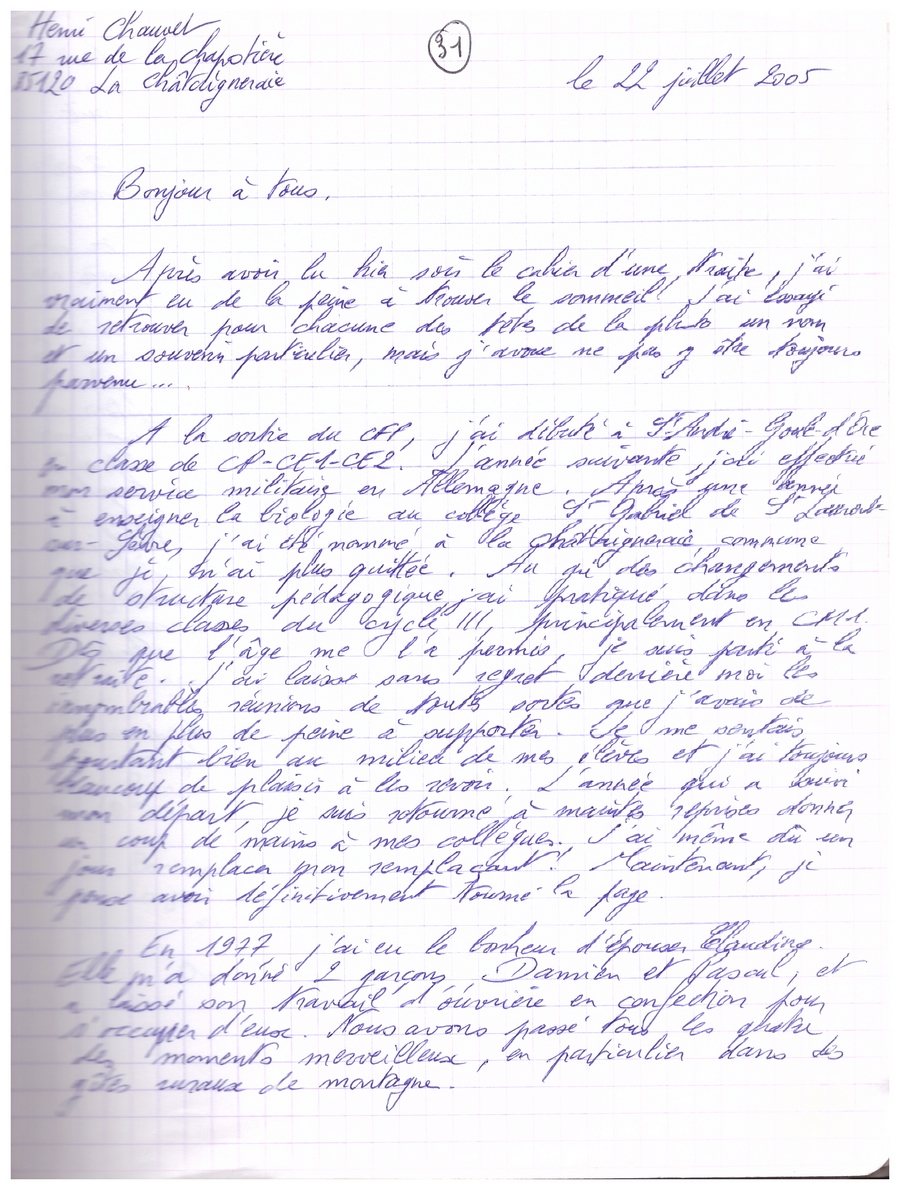 Henri Chauvet
17 rue de la chapotière
85120 La Châtaigneraie
31
le 22 juillet 2005
Bonjour à tous.
Après avoir lu hier soir le cahier d'une traite, j'ai
vraiment eu de la peine à trouver le sommeil! J'ai essayé
de retrouver pour chacune des têtes de la photo un nom
et un souvenir particulier, mais j'avoue ne pas y être toujours
parvenu...
A la sortie du CFP, j'ai débuté à St André-Goule-d'Oie
en classe de CP-CE1-CE2. L'année suivante, j'ai effectué
mon service militaire en Allemagne. Après une année
à enseigner la biologie au collège St Gabriel de St Laurent-
sur-Sèvre, j'ai été nommé à la Châtaigneraie, commune
que je n'ai plus quittée. Au gré des changements
de structure pédagogique j'ai pratiqué dans les
diverses classes du cycle III, principalement en CM1.
Dès que l'âge me l'a permis, je suis parti à la
retraite. J'ai laissé sans regret derrière moi les
innombrables réunions de toutes sortes que j'avais de
plus en plus de peine à supporter. Je me sentais
pourtant bien au milieu de mes élèves et j'ai toujours
beaucoup de plaisir à les revoir. L'année qui a suivi
mon départ, je suis retourné à maintes reprises donner
un coup de mains à mes collègues. J'ai même dû un
jour remplacer mon remplaçant! Maintenant, je
pense avoir définitivement tourné la page.
En 1977 j'ai eu le bonheur d'épouser Claudine.
Elle m'a donné 2 garçons, Damien et Pascal, et
a laissé son travail d'ouvrière en confection pour
s'occuper d'eux. Nous avons passé tous les quatre
des moments merveilleux, en particulier dans des
gîtes ruraux de montagne.